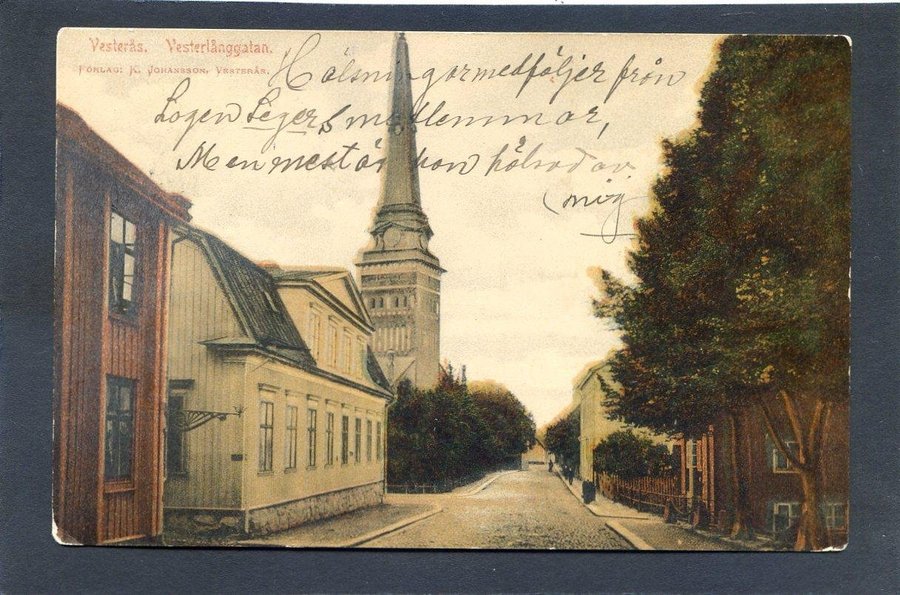 Vesterås. Vesterlånggatan.
FÖRLAG: K. JOHANSSON, VESTERÅS.
Hälsningar medföljer från
Logen Segers medlemmar,
Men mest är hon hälsad av
mig